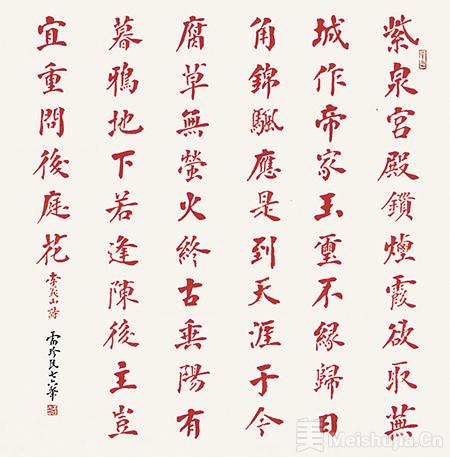 紫泉宮殿鎖煙霞欲取蕪
城作帝家玉璽不緣歸日
角錦颿應是到天涯于今
腐草無螢火終古垂陽有
暮鴉地下若逢陳後主豈
宜重問後庭花
李義山詩
雷珍民
美 Meishujia.Cn